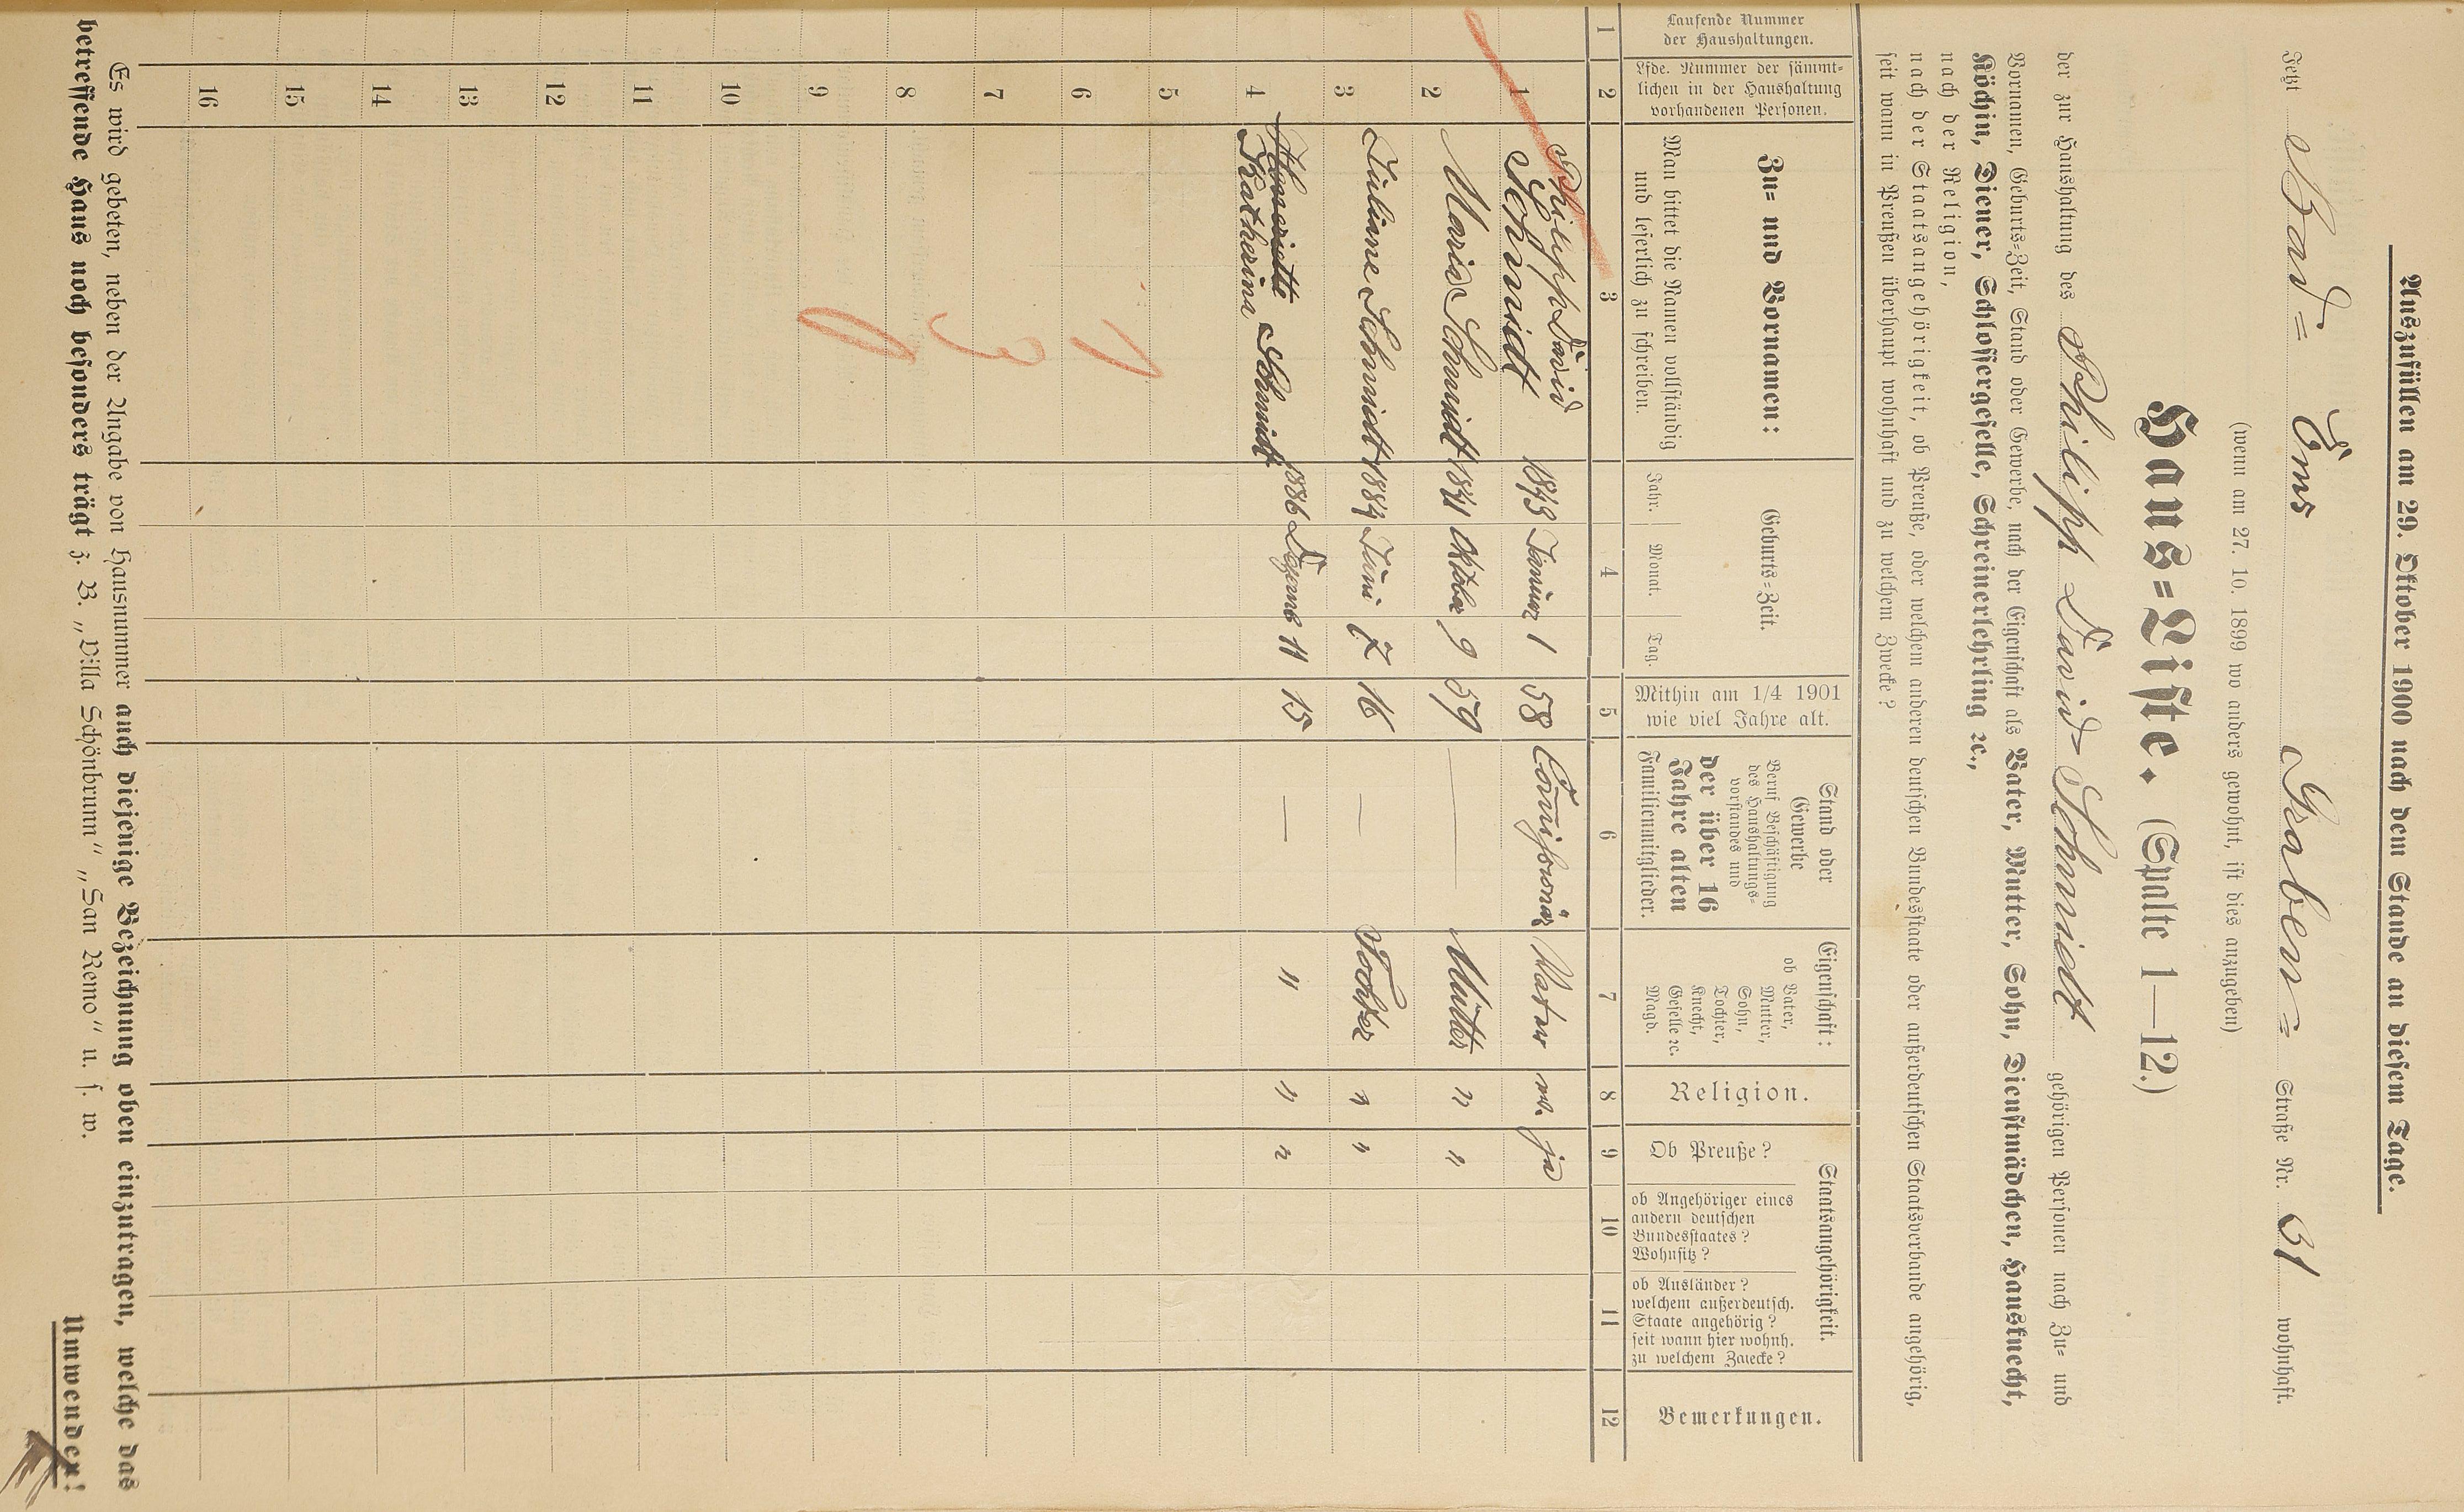 Auszufüllen am 29. Oktober 1900 nach dem Stande an diesem Tage.
Jetzt Bad= Ems Graben= Straße Nr. 31 wohnhaft.
(wenn am 27. 10. 1899 wo anders gewohnt, ist dies anzugeben)
Haus=Liste. (Spalte 1—12.)
der zur Haushaltung des Philipp David Schmidt gehörigen Personen nach Zu= und
Vornamen, Geburts=Zeit, Stand oder Gewerbe, nach der Eigenschaft als Vater, Mutter, Sohn, Dienstmädchen, Hausknecht,
Köchin, Diener, Schlossergeselle, Schreinerlehrling ꝛc.,
nach der Religion,
nach der Staatsangehörigkeit, ob Preuße, oder welchem anderen deutschen Bundesstaate oder außerdeutschen Staatsverbande angehörig,
seit wann in Preußen überhaupt wohnhaft und zu welchem Zwecke?
Laufende Nummer
der Haushaltungen.
Lfde. Nummer der sämmt=
lichen in der Haushaltung
vorhandenen Personen.
Zu= und Vornamen:
Man bittet die Namen vollständig
und leserlich zu schreiben.
Geburts=Zeit.
Jahr. Monat. Tag.
Mithin am 1/4 1901
wie viel Jahre alt.
Stand oder
Gewerbe
Beruf Beschäftigung
des Haushaltungs=
vorstandes und
der über 16
Jahre alten
Familienmitglieder.
Eigenschaft:
ob Vater,
Mutter,
Sohn,
Tochter,
Knecht,
Geselle ꝛc.
Magd.
Religion.
Staatsangehörigkeit.
Ob Preuße?
ob Angehöriger eines
andern deutschen
Bundesstaates?
Wohnsitz?
ob Ausländer?
welchem außerdeutsch.
Staate angehörig?
seit wann hier wohnh.
zu welchem Zwecke?
Bemerkungen.
1 2 3 4 5 6 7 8 9 10 11 12
Philipp David
1 Schmidt 1843 Januar 1 58 Vater ja
2 Maria Schmidt 1841 Oktober 9 59 — Mutter " "
3 Juliane Schmidt 1884 Juni 7 16 — Tochter " "
Henriette
4 Katharina Schmidt 1886 Dezemb 11 15 — " " "
5
6
7
8
9
10
11
12
13
14
15
16
Es wird gebeten, neben der Angabe von Hausnummer auch diejenige Bezeichnung oben einzutragen, welche das
betreffende Haus noch besonders trägt z. B. „Villa Schönbrunn" „San Remo" u. s. w.
Umwenden!